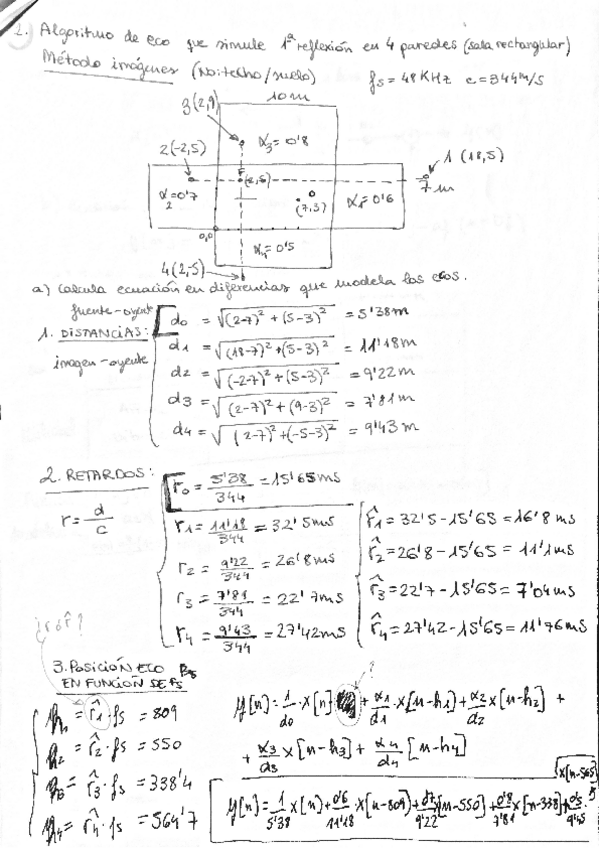 1. Algoritmo de eco que simule 1ª reflexión en 4 paredes (sala rectangular)
Método imágenes (No: techo/suelo) fs = 48 KHz c = 344 m/s
10 m
3 (2,9)
α3 = 0'8
2 (-2,5)
1 (18,5)
(2,5)
7 m
α2 = 0'7
(7,3)
α1 = 0'6
0,0
α4 = 0'5
4 (2,-5)
a) Calcula ecuación en diferencias que modela los ecos.
fuente-oyente
d0 = √((2-7)² + (5-3)²) = 5'38 m
1. DISTANCIAS:
d1 = √((18-7)² + (5-3)²) = 11'18 m
imagen-oyente
d2 = √((-2-7)² + (5-3)²) = 9'22 m
d3 = √((2-7)² + (9-3)²) = 7'81 m
d4 = √((2-7)² + (-5-3)²) = 9'43 m
2. RETARDOS:
r = d/c
r0 = 5'38/344 = 15'65 ms
r1 = 11'18/344 = 32'5 ms
r2 = 9'22/344 = 26'8 ms
r3 = 7'81/344 = 22'7 ms
r4 = 9'43/344 = 27'42 ms
r̂1 = 32'5 - 15'65 = 16'8 ms
r̂2 = 26'8 - 15'65 = 11'1 ms
r̂3 = 22'7 - 15'65 = 7'04 ms
r̂4 = 27'42 - 15'65 = 11'76 ms
¿r o r̂?
3. POSICIÓN ECO
EN FUNCIÓN DE fs
h1 = r̂1 · fs = 809
h2 = r̂2 · fs = 550
h3 = r̂3 · fs = 338'4
h4 = r̂4 · fs = 564'7
?
y[n] = 1/d0 · x[n] + α1/d1 · x[n-h1] + α2/d2 x[n-h2] +
+ α3/d3 x[n-h3] + α4/d4 [n-h4]
y[n] = 1/5'38 x[n] + 0'6/11'18 · x[n-809] + 0'7/9'22 x[n-550] + 0'8/7'81 x[n-338] + 0'5/9'45
x[n-565]